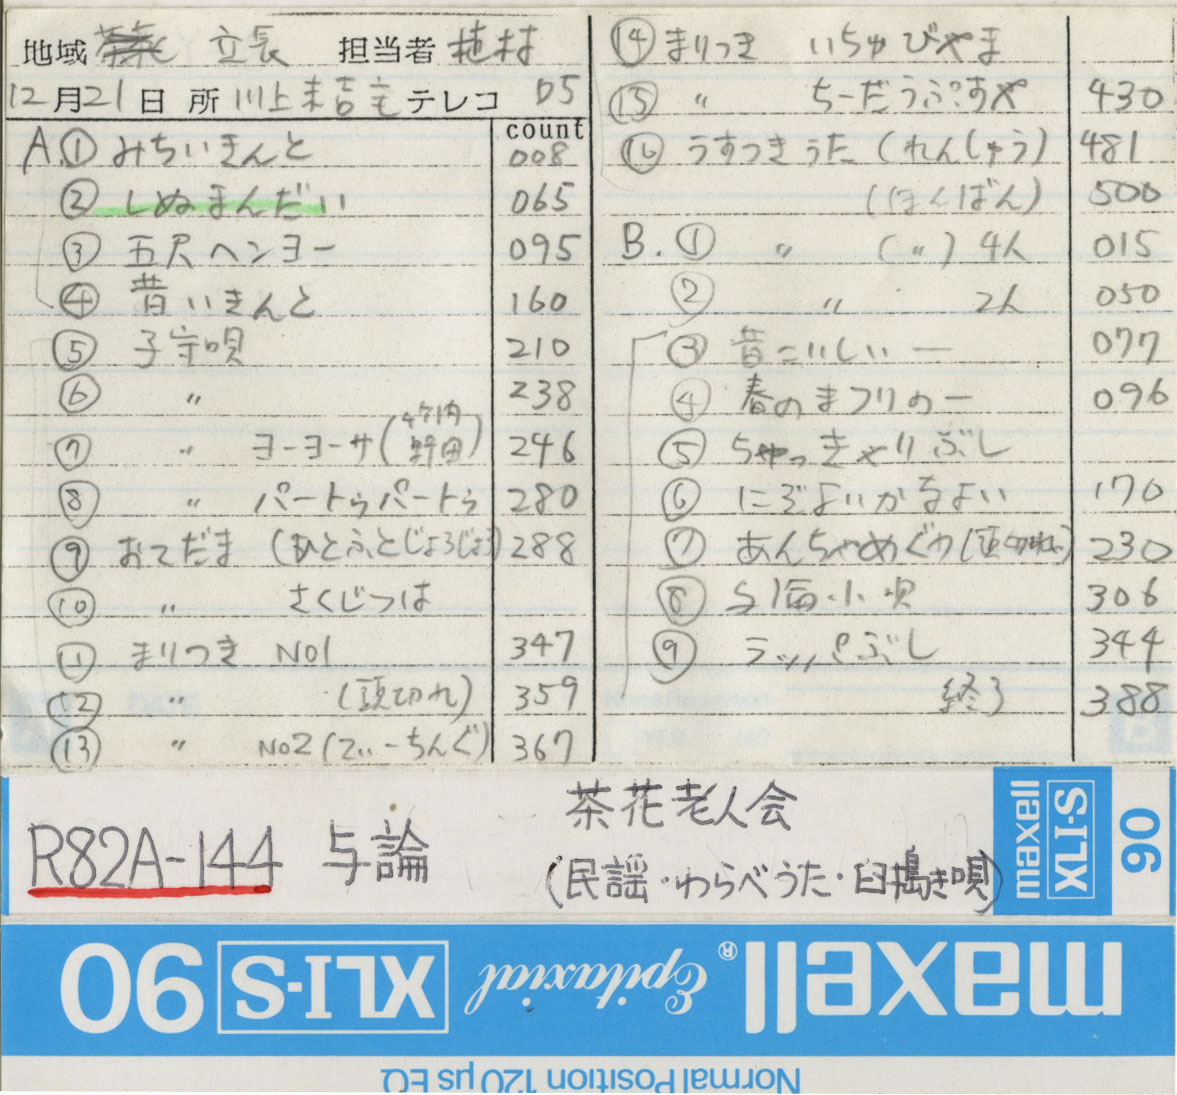 地域 立長 担当者 植村
12月21日 所 川上末吉宅 テレコ D5
count
A.① みちいきんと 008
② しぬまんだい 065
③ 五尺ヘンヨー 095
④ 昔いきんと 160
⑤ 子守唄 210
⑥ 〃 238
⑦ 〃 ヨーヨーサ(竹内 野田) 246
⑧ 〃 パートゥパートゥ 280
⑨ おてだま (ひとふとじょろじょろ) 288
⑩ 〃 さくじつは
⑪ まりつき No1 347
⑫ 〃 (頭切れ) 359
⑬ 〃 No2(てぃーちんぐ) 367
⑭ まりつき いちゅびやま
⑮ 〃 ちーだうぷすや 430
⑯ うすつきうた (れんしゅう) 481
(ほんばん) 500
B.① 〃 (〃) 4人 015
② 〃 2人 050
③ 昔こいしいー 077
④ 春のまつりのー 096
⑤ ちゃっきゃりぶし
⑥ にぶよいかなよい 170
⑦ あんちゃめぐゎ(頭切れ) 230
⑧ 与論小唄 306
⑨ ラッパぶし 344
終了 388
R82A-144 与論
茶花老人会
(民謡・わらべうた・臼搗き唄)
maxell XLI-S 90
maxell® Epitaxial XLI-S 90
Normal Position 120μs EQ